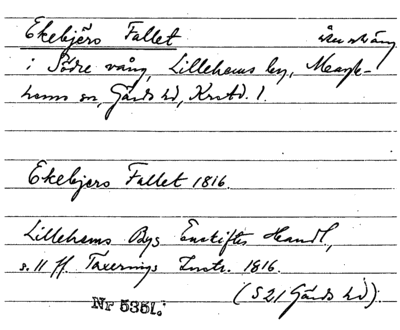 Ekebjörs Fallet åker o. äng
i Södre vång, Lillehems by, Maglehems sn, Gärds hd, Krstd. l.
Ekebjers Fallet 1816.
Lillehems Bys Enskiftes Handl,
s. 11 ff. Taxerings Instr. 1816.
(S 21 Gärds hd).
Nr 5351.